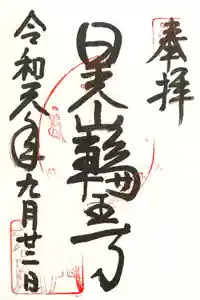 奉拝
日光山輪王寺
令和元年九月廿二日